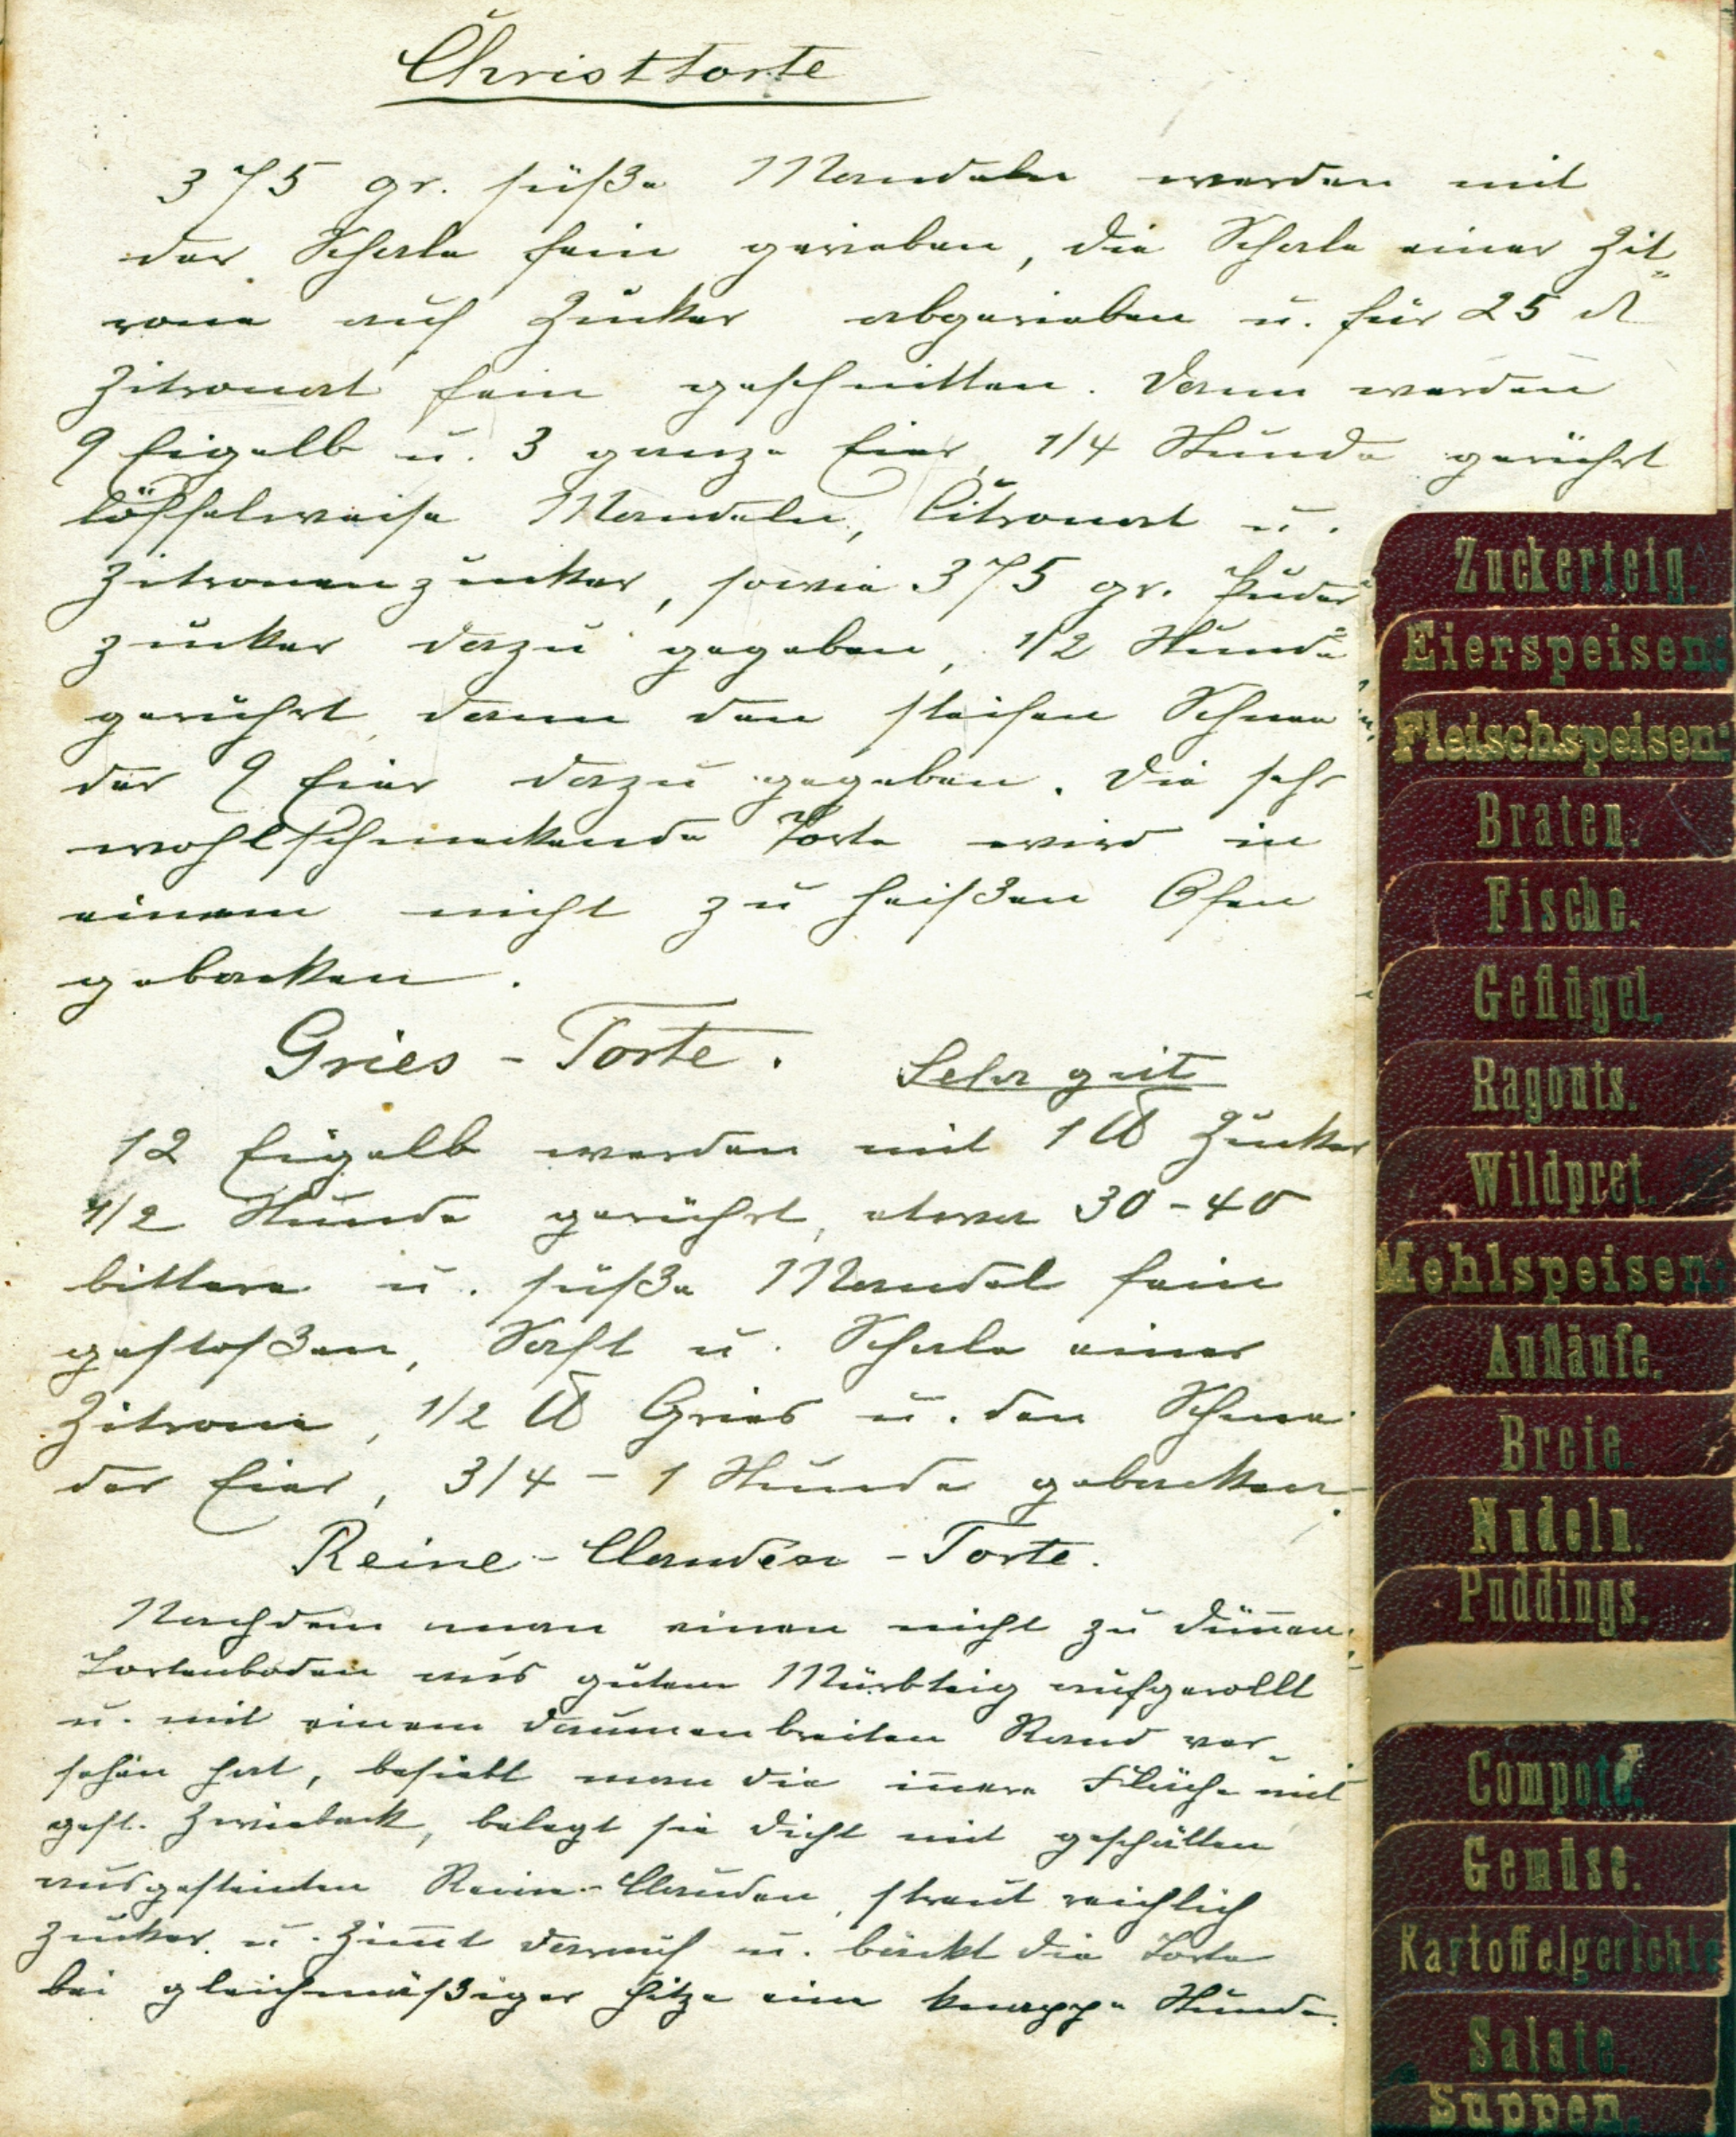 Christtorte
375 gr. süße Mandeln werden mit
der Schale fein gerieben, die Schale einer Zit-
rone auf Zucker abgerieben u. für 25 ₰
Zitronat fein geschnitten. Dann werden
9 Eigelb u. 3 ganze Eier, 1/4 Stunde gerührt
löffelweise Mandeln, Citronat u.
Zitronenzucker, sowie 375 gr. Puder
zucker dazu gegeben, 1/2 Stunde
gerührt, dann den steifen Schnee
der 9 Eier dazu gegeben. Die sehr
wohlschmeckende Torte wird in
einem nicht zu heißen Ofen
gebacken.
Gries - Torte. Sehr gut
12 Eigelb werden mit 1 ℔ Zucker
1/2 Stunde gerührt, etwa 30 - 40
bittere u. süße Mandel fein
gestoßen, Saft u. Schale einer
Zitrone, 1/2 ℔ Gries u. den Schnee
der Eier, 3/4 - 1 Stunde gebacken.
Reine - Clauden - Torte.
Nachdem man einen nicht zu dünnen
Tortenboden aus gutem Mürbteig aufgerollt
u. mit einem daumenbreiten Rand ver-
sehen hat, besiebt man die innere Fläche mit
gest. Zwieback, belegt sie dicht mit geschälten
ausgesteinten Reine-Clauden, streut reichlich
Zucker u. Zimt darauf u. bäckt die Torte
bei gleichmäßiger Hitze eine knappe Stunde.
Zuckerteig.
Eierspeisen:
Fleischspeisen:
Braten.
Fische.
Geflügel.
Ragouts.
Wildpret.
Mehlspeisen:
Aufläufe.
Breie.
Nudeln.
Puddings.
Compote.
Gemüse.
Kartoffelgerichte
Salate.
Suppen.